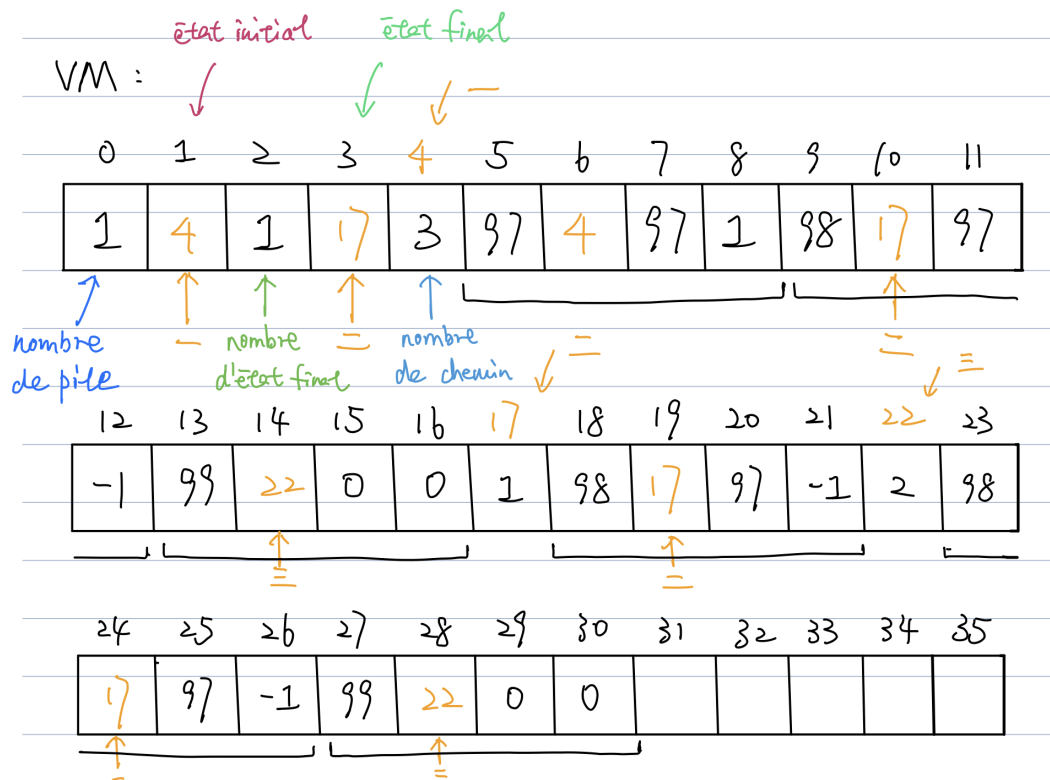 état initial état final
VM :
一
0 1 2 3 4 5 6 7 8 9 10 11
1 4 1 17 3 97 4 97 1 98 17 97
nombre de pile
一
nombre d'état final
二
nombre de chemin
二
二
三
12 13 14 15 16 17 18 19 20 21 22 23
-1 99 22 0 0 1 98 17 97 -1 2 98
三
二
24 25 26 27 28 29 30 31 32 33 34 35
17 97 -1 99 22 0 0